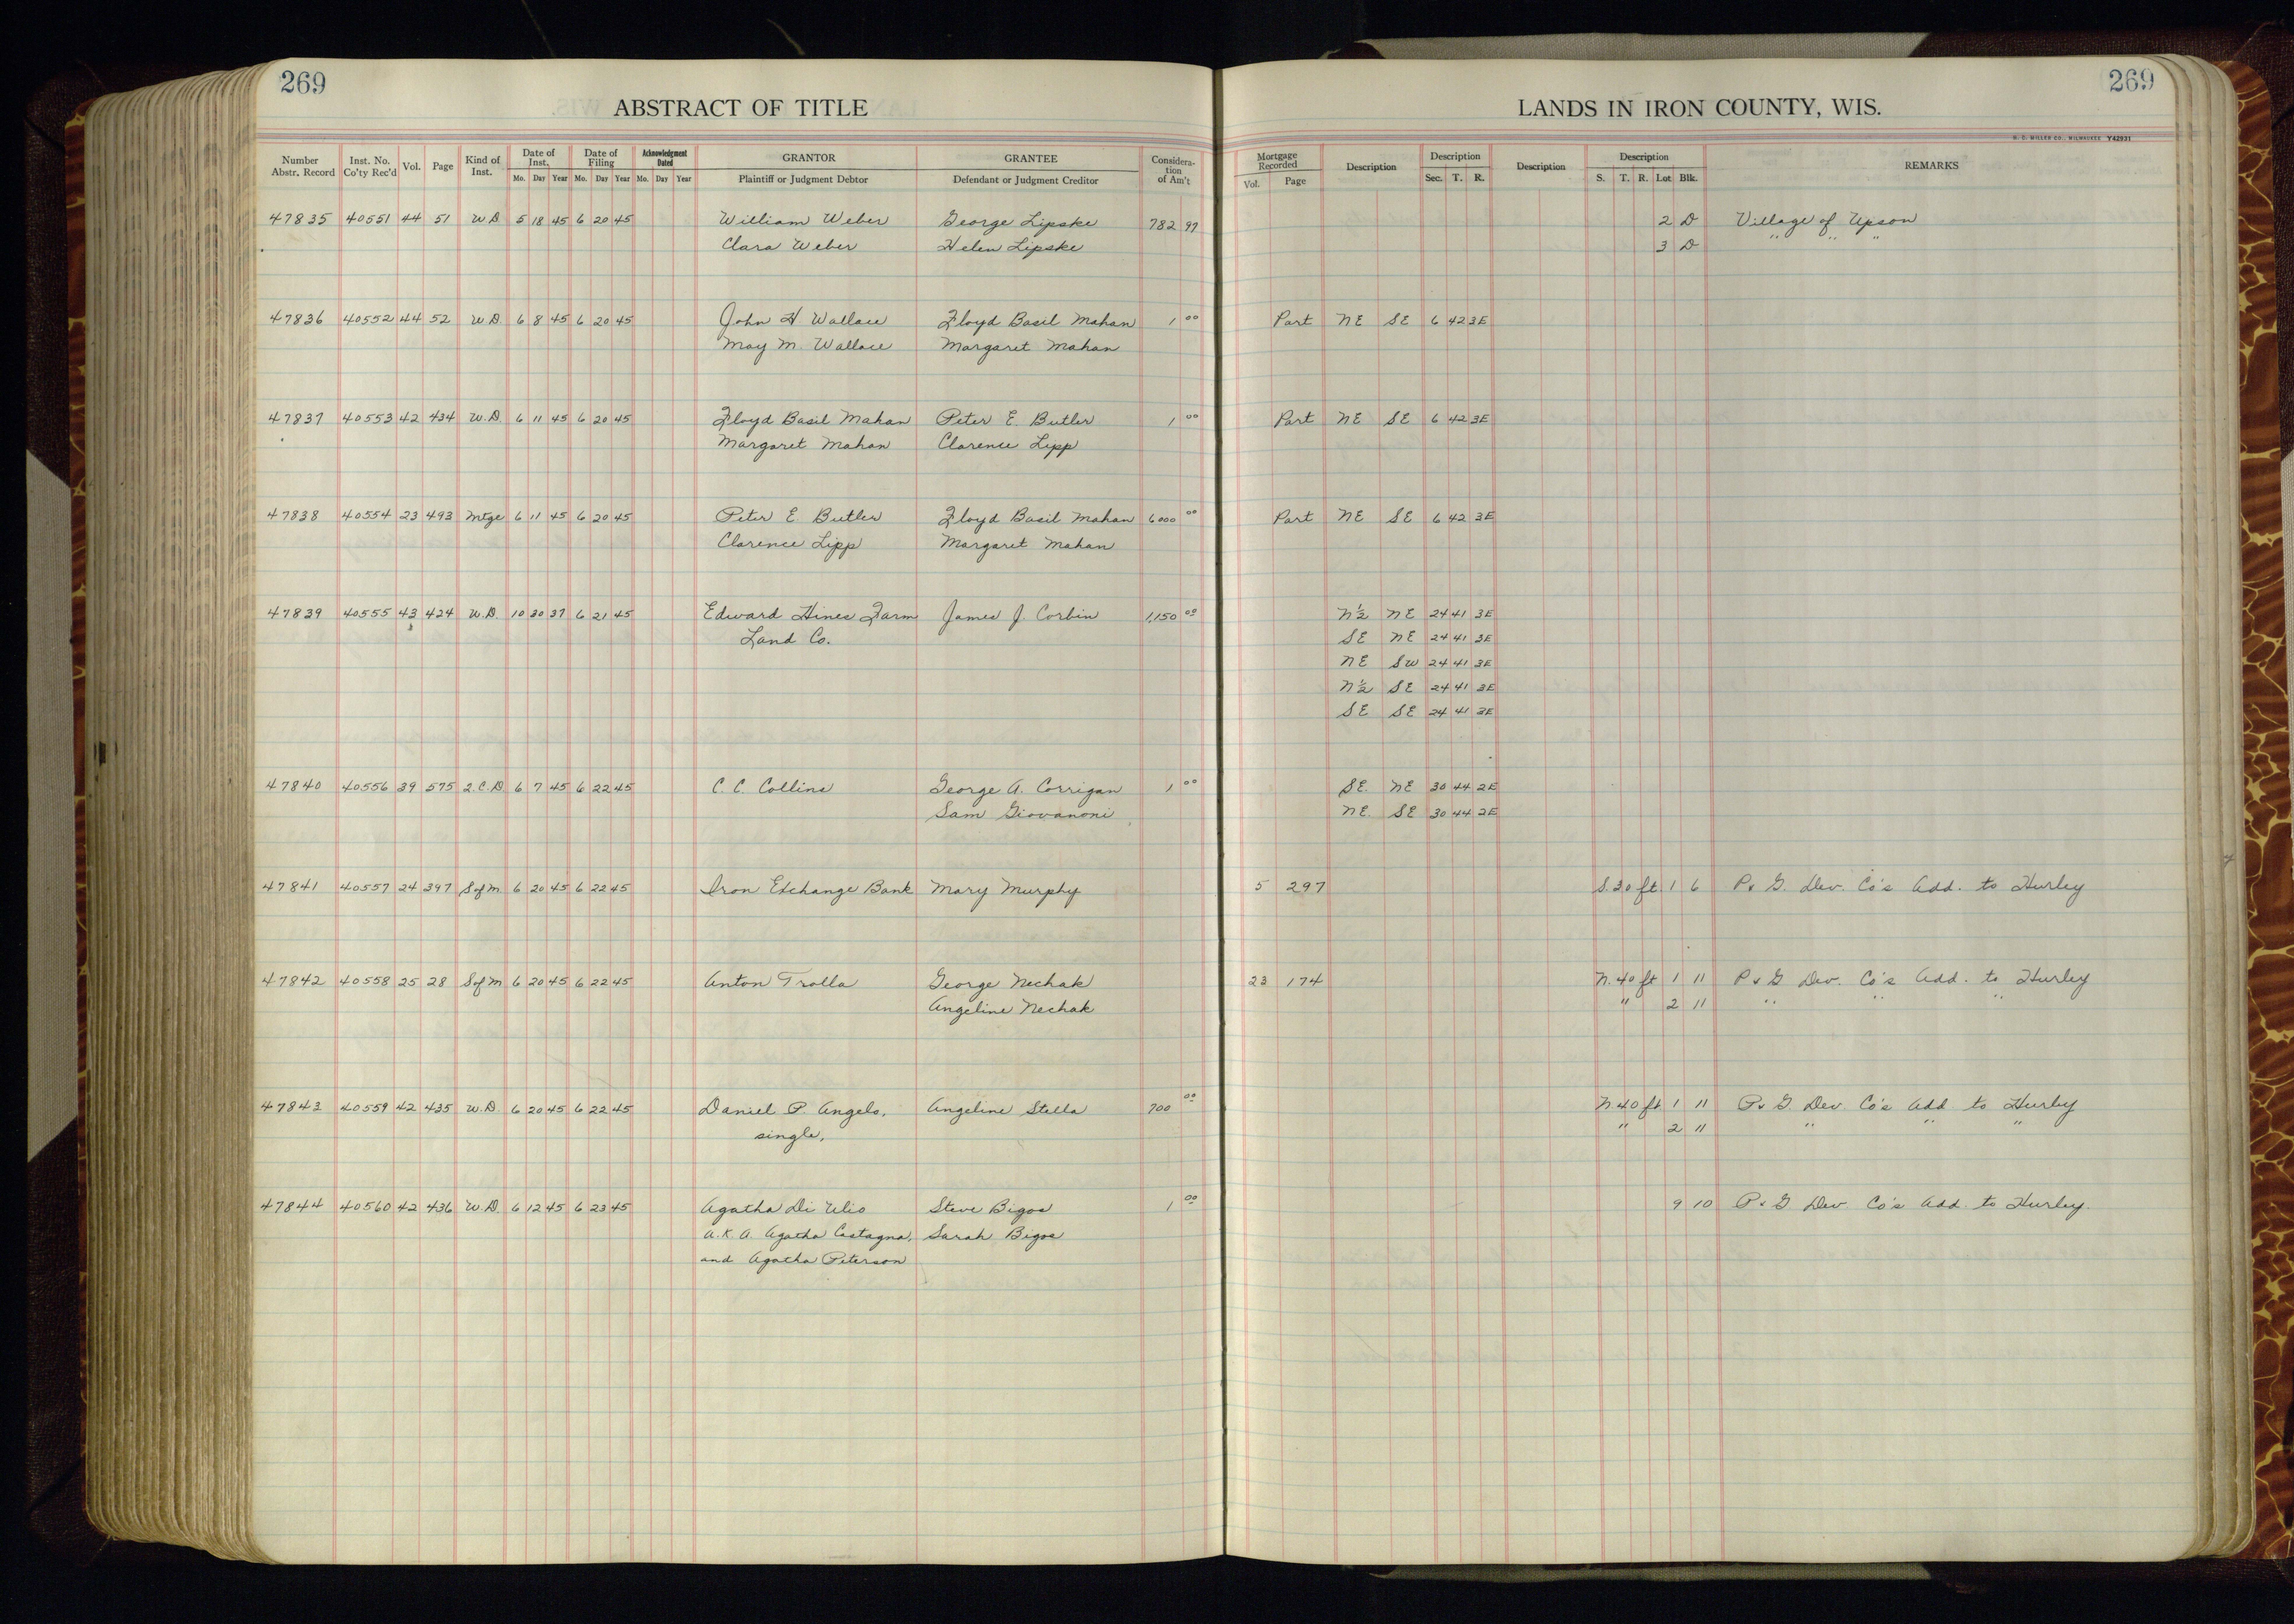 269
ABSTRACT OF TITLE
Number Abstr. Record Inst. No. Co'ty Rec'd Vol. Page Kind of Inst. Date of Inst. Mo. Day Year Date of Filing Mo. Day Year Acknowledgment Dated Mo. Day Year GRANTOR Plaintiff or Judgment Debtor GRANTEE Defendant or Judgment Creditor Considera-tion of Am't
47835 40551 44 51 W D 5 18 45 6 20 45 William Weber George Lipske 782 97
Clara Weber Helen Lipske
47836 40552 44 52 W.D. 6 8 45 6 20 45 John H Wallace Floyd Basil Mahan 1 00
May M. Wallace Margaret Mahan
47837 40553 42 434 W.D. 6 11 45 6 20 45 Floyd Basil Mahan Peter E. Butler 1 00
Margaret Mahan Clarence Lipp
47838 40554 23 493 Mtge 6 11 45 6 20 45 Peter E. Butler Floyd Basil Mahan 6000 00
Clarence Lipp Margaret Mahan
47839 40555 43 424 W.D. 10 30 37 6 21 45 Edward Hines Farm James J. Corbin 1,150 00
Land Co.
47840 40556 39 575 2.C.D 6 7 45 6 22 45 C. C. Collins George A. Corrigan 1 00
Sam Giovanoni
47841 40557 24 397 S of M 6 20 45 6 22 45 Iron Exchange Bank Mary Murphy
47842 40558 25 28 S of M 6 20 45 6 22 45 Anton Trolla George Nechak
Angeline Nechak
47843 40559 42 435 W.D. 6 20 45 6 22 45 Daniel P. Angelo, Angeline Stella 700 00
single,
47844 40560 42 436 W.D. 6 12 45 6 23 45 Agatha Di Ulio Steve Bigos 1 00
A.K.A. Agatha Castagna, Sarah Bigos
and Agatha Peterson
269
LANDS IN IRON COUNTY, WIS.
H. C. MILLER CO., MILWAUKEE Y42931
Mortgage Recorded Vol. Page Description Description Sec. T. R. Description Description S. T. R. Lot Blk. REMARKS
2 D Village of Upson
3 D " " "
Part NE SE 6 42 3E
Part NE SE 6 42 3E
Part NE SE 6 42 3E
N½ NE 24 41 3E
SE NE 24 41 3E
NE SW 24 41 3E
N½ SE 24 41 3E
SE SE 24 41 3E
SE. NE 30 44 2E
NE. SE 30 44 2E
5 297 S.30 ft 1 6 P & G. Dev. Co's Add. to Hurley
23 174 N.40 ft 1 11 P & G Dev. Co's Add. to Hurley
" 2 11 " " "
N.40 ft 1 11 P & G. Dev. Co's Add to Hurley
" 2 11 " " "
9 10 P & G Dev Co's Add. to Hurley.